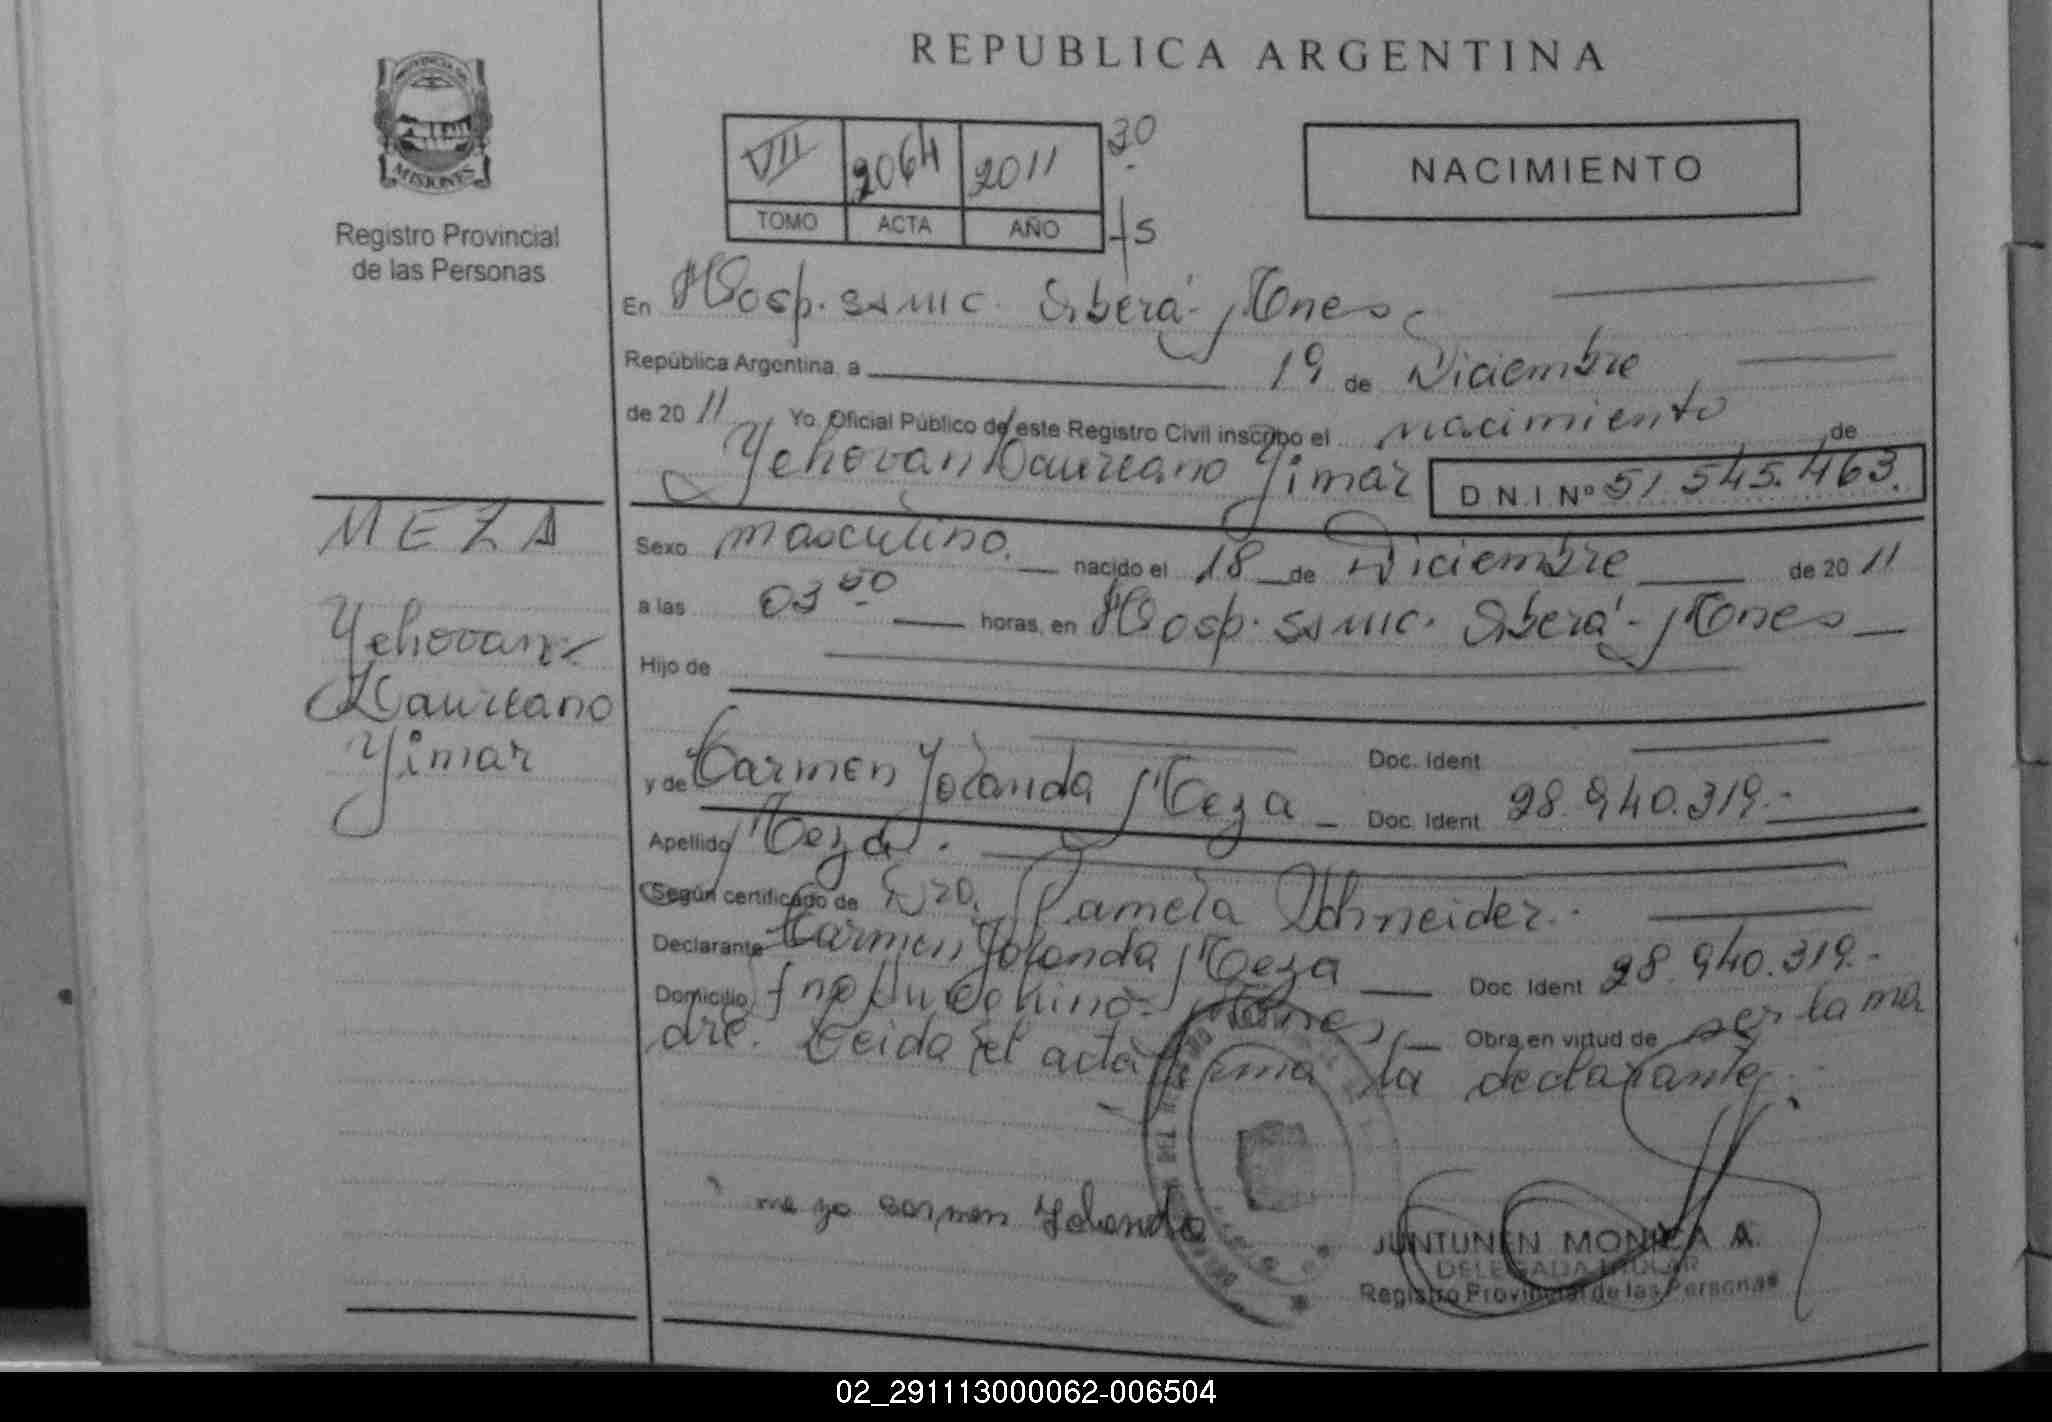 REPUBLICA ARGENTINA
PROVINCIA DE
MISIONES
Registro Provincial
de las Personas
VII 2064 2011 30
TOMO ACTA AÑO fs
NACIMIENTO
En Hosp. SAMIC. Oberá - Mnes
República Argentina, a 19 de Diciembre
de 2011 Yo Oficial Público de este Registro Civil inscribo el nacimiento de
Yehovan Laureano Yimar D.N.I. Nº 51.545.463.
MEZA
Yehovan
Laureano
Yimar
Sexo masculino. nacido el 18 de Diciembre de 2011
a las 03 00 horas, en Hosp. SAMIC. Oberá - Mnes
Hijo de
Doc. Ident
y de Carmen Yolanda Meza Doc. Ident 28.940.319.-
Apellido Meza.
Según certificado de Dra. Pamela Schneider.
Declarante Carmen Yolanda Meza Doc. Ident 28.940.319.-
Domicilio Mnes Obra en virtud de ser la ma
dre. Leida el acta firma la declarante
meza carmen Yolanda
JUNTUNEN MONICA A.
DELEGADA TITULAR
Registro Provincial de las Personas
02_291113000062-006504